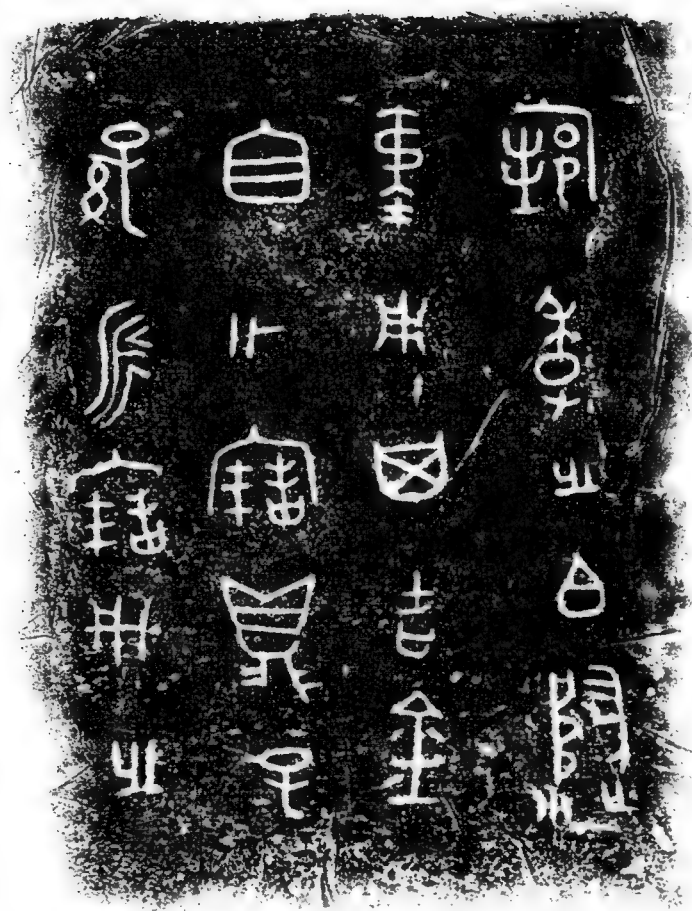 季之白歸
用其吉金
自乍寶鼎子
孫永寶用之